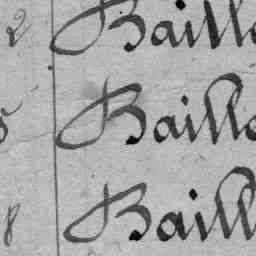 2 Baillo
5 Baillo
8 Baill